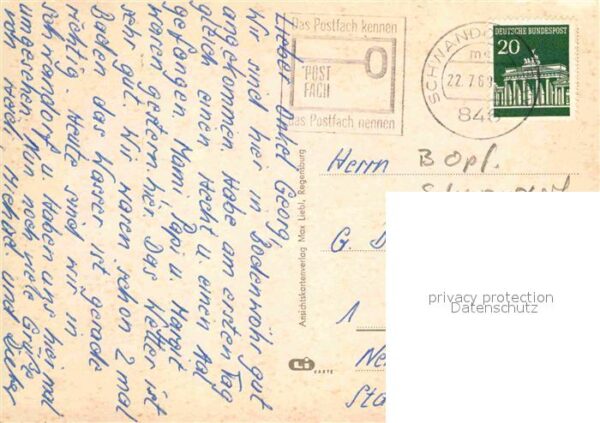 Lieber Onkel Georg,
Wir sind hier in Bodenwöhr gut
angekommen. Habe am ersten Tag
gleich einen Hecht u. einen Aal
gefangen. Mami, Papi u.
waren gestern hier. Das Wetter ist
sehr gut. Wir waren schon 2 mal
Baden das Wasser ist gerade
richtig. Heute sind wir in
Schwandorf u. haben uns hier mal
umgesehen. Nun noch viele Grüße
von Heidi, und Dieter
Das Postfach kennen
POST
FACH
Das Postfach nennen
SCHWANDO
22.7.69
846
DEUTSCHE BUNDESPOST
20
Herrn
B Opf.
G. D
1
Ne
Sta
Ansichtskartenverlag Max Liebl, Regensburg
Li
KARTE
privacy protection
Datenschutz